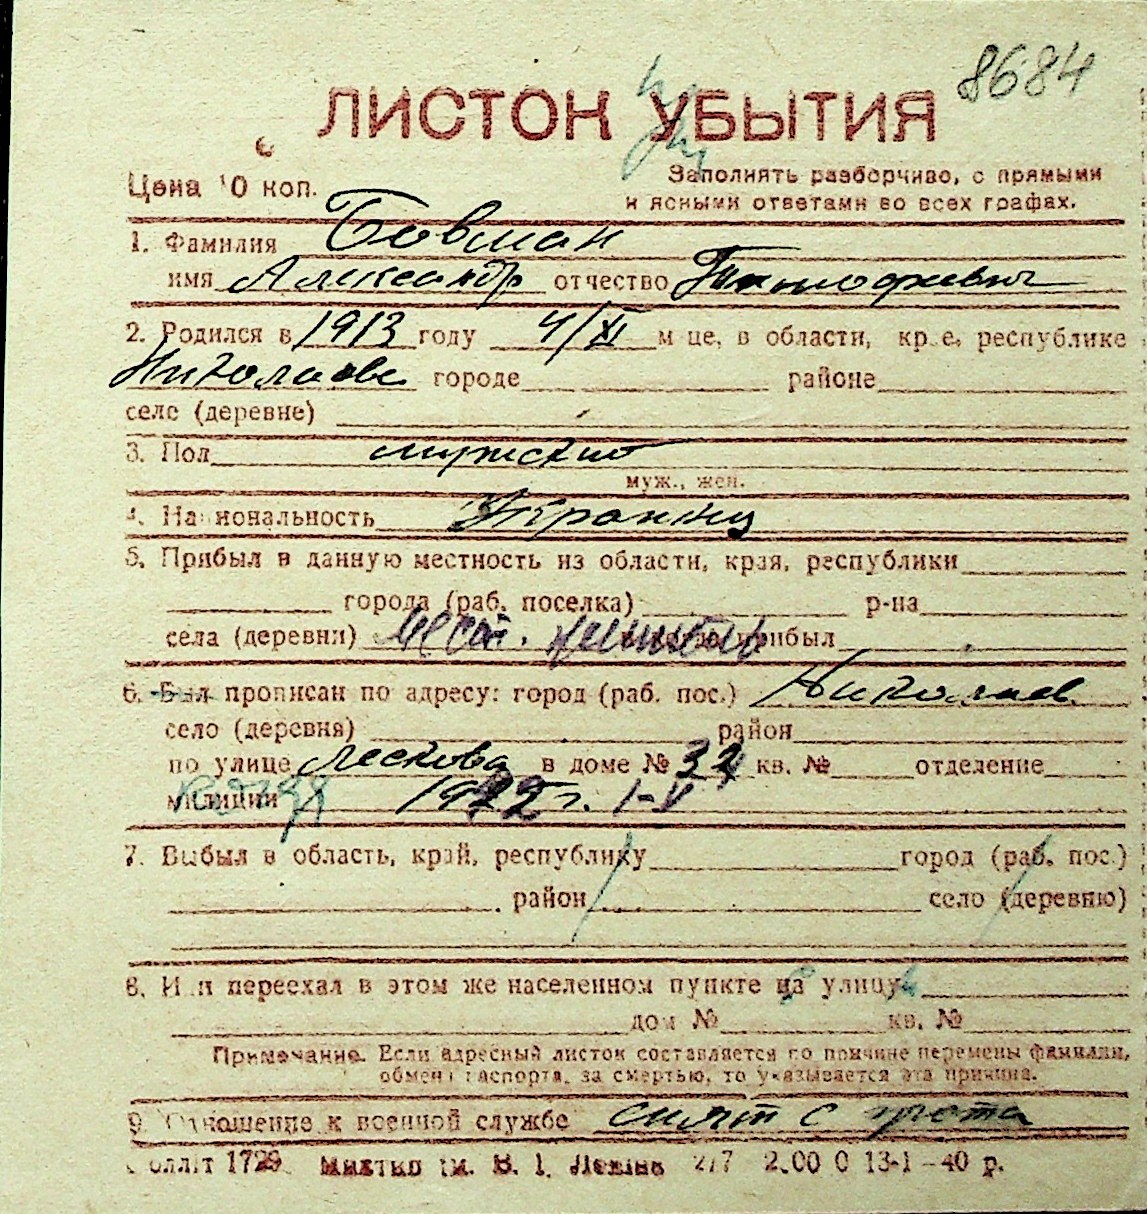 8684
ЛИСТОК УБЫТИЯ
Цена 10 коп.
Заполнять разборчиво, с прямыми
и ясными ответами во всех графах.
1. Фамилия Бовман
имя Александр отчество Тимофеевич
2. Родился в 1913 году 4/XI м-це, в области, крае, республике
Николаеве городе районе
селе (деревне)
3. Пол мужской
муж., жен.
4. Национальность Украинец
5. Прибыл в данную местность из области, края, республики
города (раб. поселка) р-на
села (деревни) мест. житель прибыл
6. Был прописан по адресу: город (раб. пос.) Николаев
село (деревня) район
по улице Лескова в доме № 32 кв. № отделение
милиции 1922 г. 1-V
7. Выбыл в область, край, республику город (раб. пос.)
район село (деревню)
8. Или переехал в этом же населенном пункте на улицу
дом № кв. №
Примечание. Если адресный листок составляется по причине перемены фамилии,
обмена паспорта, за смертью, то указывается эта причина.
9. Отношение к военной службе снят с учета
оллит 1729 им. В. І. Леніна 2/7 2.00 0 13-1-40 р.